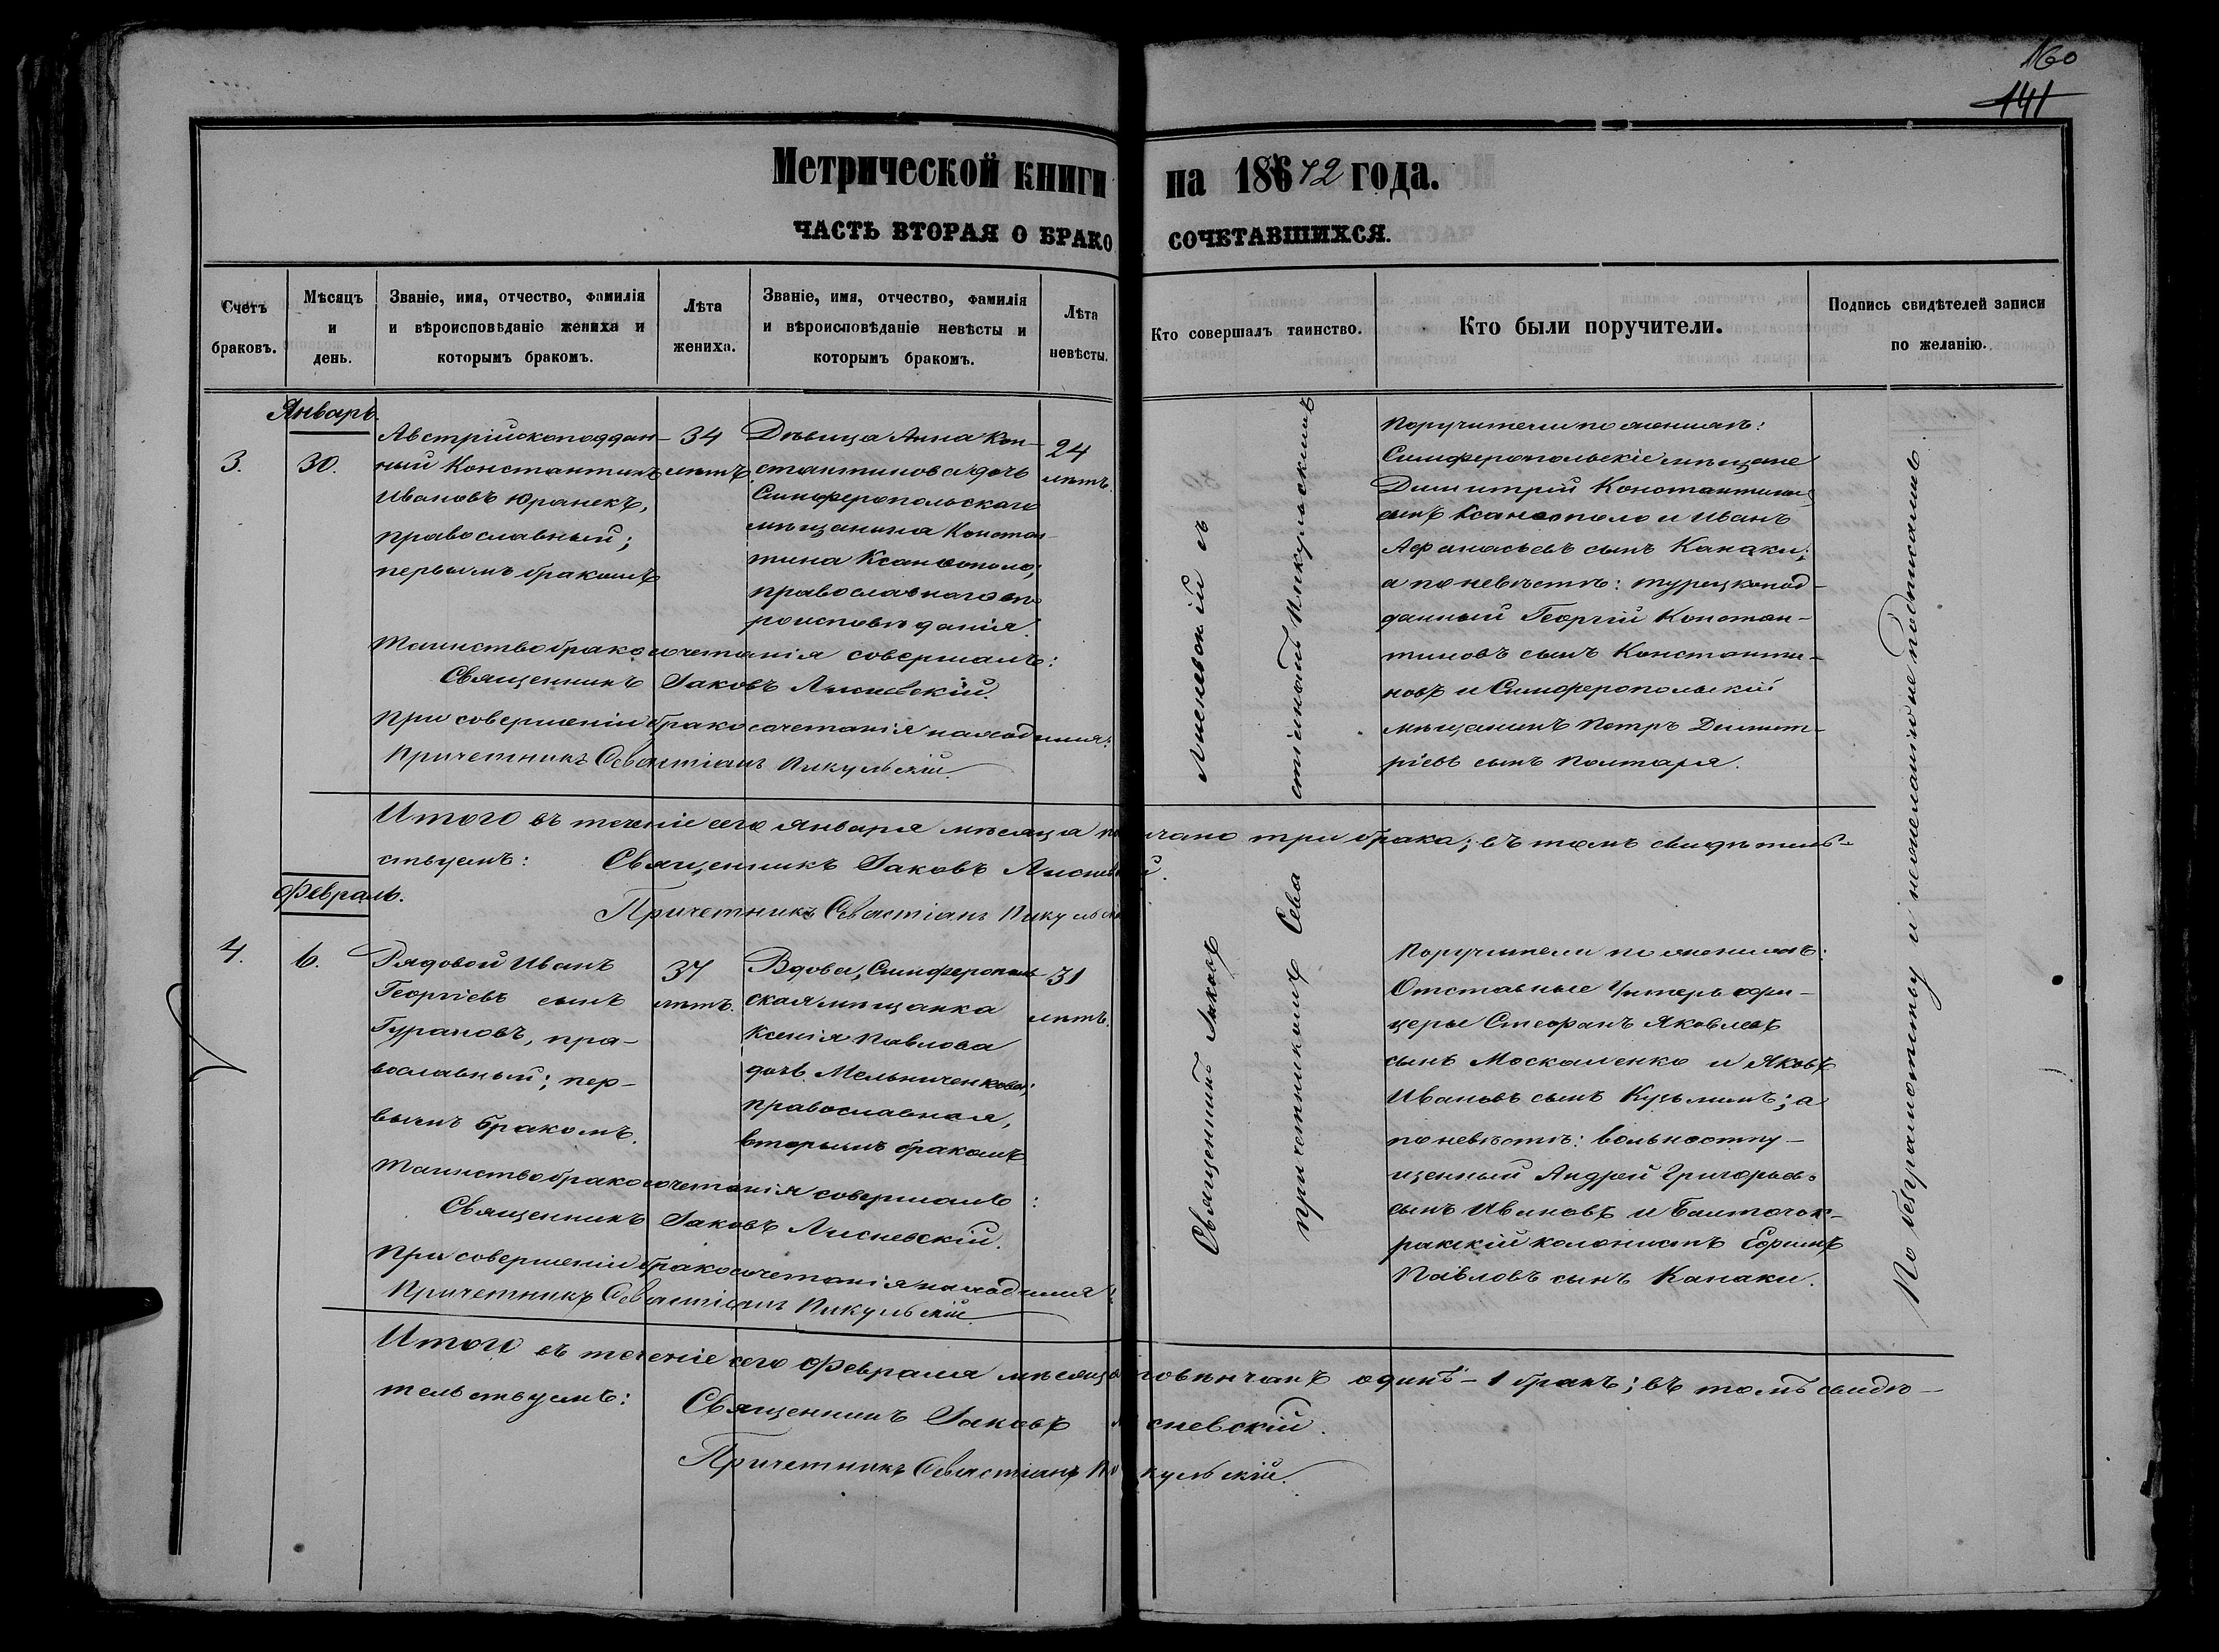 160
141
Метрической книги на 186 72 года.
ЧАСТЬ ВТОРАЯ О БРАКОСОЧЕТАВШИХСЯ.
Счетъ браковъ.
Мѣсяцъ и день.
Званіе, имя, отчество, фамилія и вѣроисповѣданіе жениха и которымъ бракомъ.
Лѣта жениха.
Званіе, имя, отчество, фамилія и вѣроисповѣданіе невѣсты и которымъ бракомъ.
Лѣта невѣсты.
Кто совершалъ таинство.
Кто были поручители.
Подпись свидѣтелей записи по желанію.
Январь.
3.
30.
Австрійскоподдан-
ный Константинъ
Ивановъ Юранекъ,
православный;
первымъ бракомъ
34
лѣтъ.
Дѣвица Анна Кон-
стантинова дочь
Симферопольскаго
мѣщанина Констан-
тина Ксанѳополо,
православнаго вѣ-
роисповѣданія.
24
лѣтъ.
Таинство бракосочетанія совершалъ:
Священникъ Іаковъ Лисневскій.
При совершеніи бракосочетанія находился:
Причетникъ Севастіанъ Пикульскій.
Поручители по женихѣ:
Симферопольскіе мѣщане
Димитрій Константиновъ
сынъ Ксанѳополо и Иванъ
Афанасьевъ сынъ Канаки;
а по невѣстѣ: турецкопод-
данный Георгій Констан-
тиновъ сынъ Константи-
новъ и Симферопольскій
мѣщанинъ Петръ Димит-
ріевъ сынъ Полтаря.
Итого въ теченіе сего января мѣсяца три брака; въ томъ свидѣтель-
ствуемъ: Священникъ Іаковъ Лисневскій.
Причетникъ Севастіанъ Пикульскій
Февраль.
4.
6.
Рядовой Иванъ
Георгіевъ сынъ
Гурановъ, пра-
вославный; пер-
вымъ бракомъ.
37
лѣтъ.
Вдова, Симферополь-
ская мѣщанка
Ксенія Павлова
дочь Мельниченкова;
православная,
вторымъ бракомъ
31
лѣтъ.
Таинство бракосочетанія совершалъ:
Священникъ Іаковъ Лисневскій.
При совершеніи бракосочетанія находился:
Причетникъ Севастіанъ Пикульскій.
Поручители по женихѣ:
Отставные Унтеръ офи-
церы Стефанъ Яковлевъ
сынъ Москаленко и Яковъ
Ивановъ сынъ Кузьминъ; а
по невѣстѣ: вольноотпу-
щенный Андрей Григорьевъ
сынъ Ивановъ и Балточок-
ракскій колонистъ Ефимъ
Павловъ сынъ Канаки.
Итого въ теченіе сего Февраля мѣсяца повѣнчанъ одинъ - 1 бракъ; въ томъ свидѣ-
тельствуемъ: Священникъ Іаковъ Лисневскій.
Причетникъ Севастіанъ Пикульскій.
Священникъ Іаковъ Лисневскій съ
причетникомъ Севастіаномъ Пикульскимъ
По безграмотству и нежеланію не подписались.